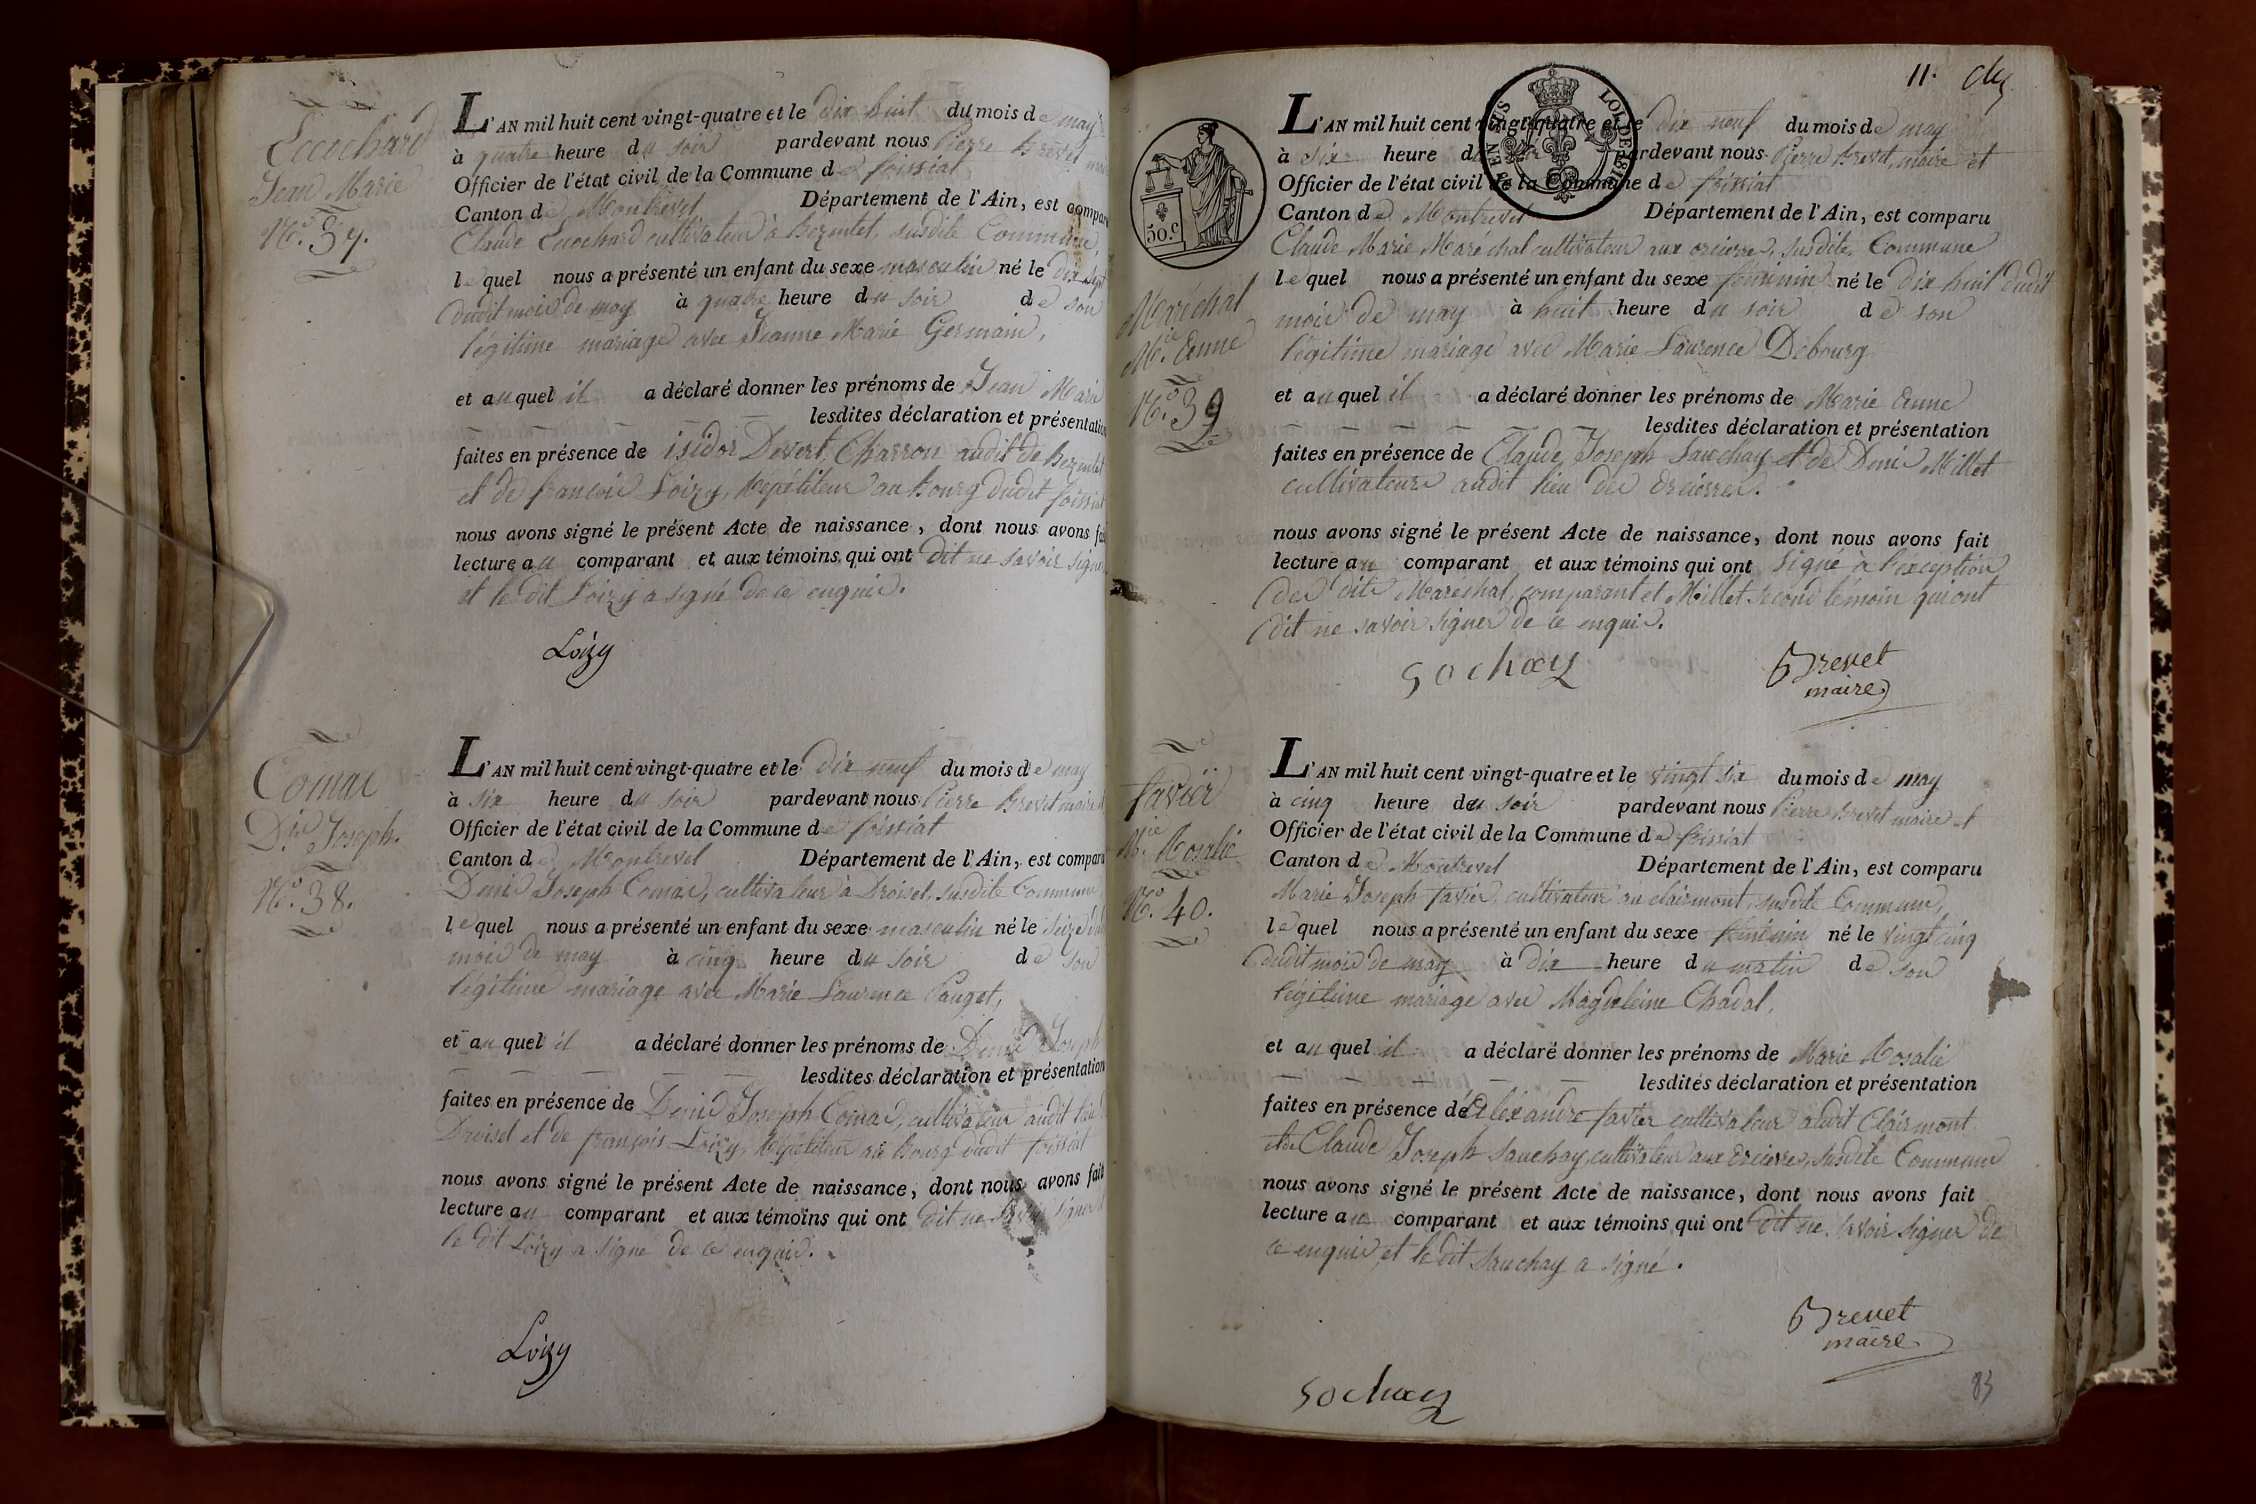 Jean Marie
N.º 37.
L'AN mil huit cent vingt-quatre et le dix huit du mois de may
à quatre heure du soir pardevant nous Pierre Brevet
Officier de l'état civil de la Commune de foissiat
Canton de Montrevel Département de l'Ain, est compar
Claude cultivateur à susdite Commune
lequel nous a présenté un enfant du sexe masculin né le dix sept
dudit mois de may à quatre heure du soir de son
légitime mariage avec Jeanne Marie Germain,
et auquel il a déclaré donner les prénoms de Jean Marie
lesdites déclaration et présentation
faites en présence de isidor Devert, Charron audit de
et de françois Loizy, Répétiteur au bourg dudit foissiat
nous avons signé le présent Acte de naissance, dont nous avons fai
lecture au comparant et aux témoins qui ont dit ne savoir signer
et le dit Loizy a signé de ce enquis.
Loizy
Comas
D.is Joseph.
N.º 38.
L'AN mil huit cent vingt-quatre et le dix neuf du mois de may
à six heure du soir pardevant nous Pierre Brevet maire
Officier de l'état civil de la Commune de foissiat
Canton de Montrevel Département de l'Ain, est comparu
Denis Joseph Comas, cultivateur à Droiset, susdite Commune
lequel nous a présenté un enfant du sexe masculin né le seize
mois de may à cinq heure du soir de son
légitime mariage avec Marie Laurence Pauget,
et auquel il a déclaré donner les prénoms de Denis Joseph
lesdites déclaration et présentation
faites en présence de Denis Joseph Comas, cultivateur audit lieu
Droiset et de françois Loizy, Répétiteur au bourg dudit foissiat
nous avons signé le présent Acte de naissance, dont nous avons fait
lecture au comparant et aux témoins qui ont dit ne savoir signer
le dit Loizy a signé de ce enquis.
Loizy
11.
50.c
LOI DE 1816
Maréchal
M.ie Anne
N.º 39
L'AN mil huit cent vingt-quatre et le dix neuf du mois de may
à six heure du soir pardevant nous Pierre Brevet, maire et
Officier de l'état civil de la Commune de foissiat
Canton de Montrevel Département de l'Ain, est comparu
Claude Marie Maréchal cultivateur aux orcierres, susdite Commune
lequel nous a présenté un enfant du sexe féminin né le dix huit dudit
mois de may à huit heure du soir de son
légitime mariage avec Marie Laurence Debourg
et auquel il a déclaré donner les prénoms de Marie Anne
lesdites déclaration et présentation
faites en présence de Claude Joseph Sauchay et de Denis Millet
cultivateurs audit lieu des Orcierres.
nous avons signé le présent Acte de naissance, dont nous avons fait
lecture au comparant et aux témoins qui ont signé à l'exception
des dits Maréchal, comparant et Millet second témoin qui ont
dit ne savoir signer de ce enquis.
Sochay
Brevet
maire
favier
M.ie Rosalie
N.º 40.
L'AN mil huit cent vingt-quatre et le vingt six du mois de may
à cinq heure du soir pardevant nous Pierre Brevet maire et
Officier de l'état civil de la Commune de foissiat
Canton de Montrevel Département de l'Ain, est comparu
Marie Joseph favier, cultivateur au clairmont, susdite Commune,
lequel nous a présenté un enfant du sexe féminin né le vingt cinq
dudit mois de may à dix heure du matin de son
légitime mariage avec Magdeleine Chadal,
et auquel il a déclaré donner les prénoms de Marie Rosalie
lesdites déclaration et présentation
faites en présence de Aléxandre favier cultivateur audit Clairmont
et de Claude Joseph Sauchay, cultivateur aux Orcierres, susdite Commune
nous avons signé le présent Acte de naissance, dont nous avons fait
lecture au comparant et aux témoins qui ont dit ne savoir signer de
ce enquis et le dit Sauchay a signé.
Brevet
maire
Sochay
83